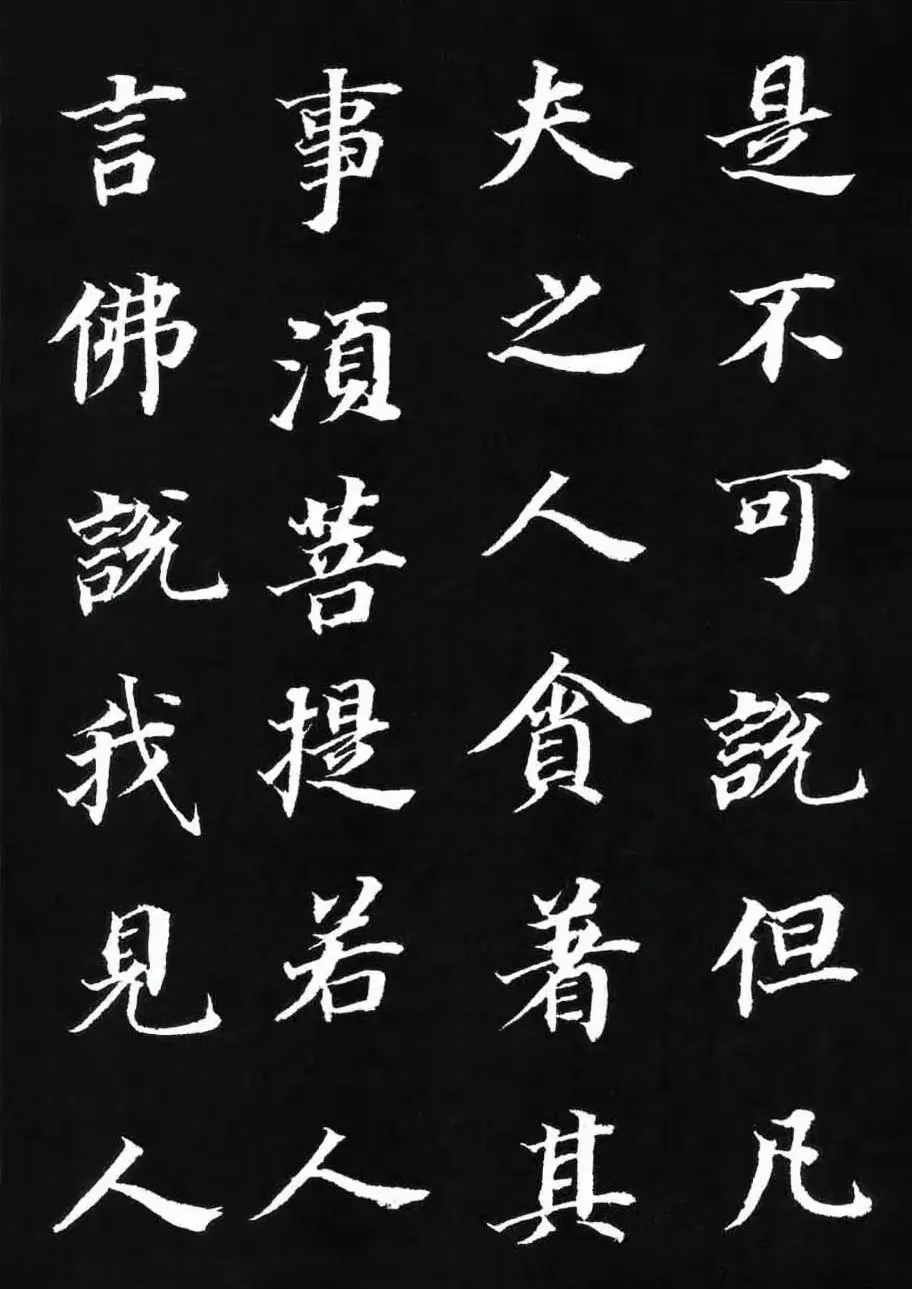 是不可說但凡
夫之人貪著其
事湏菩提若人
言佛說我見人